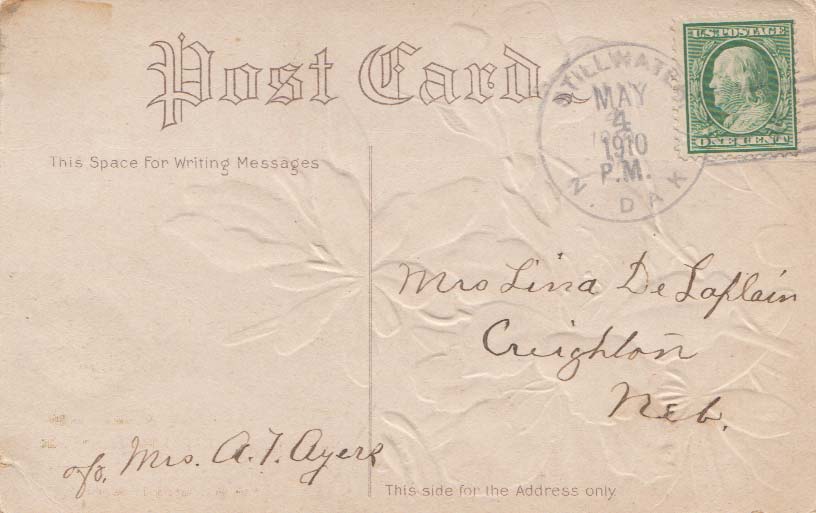 Post Card
U.S. POSTAGE
ONE CENT
STILLWATER
MAY
4
1910
P.M.
N. DAK
This Space For Writing Messages
Mrs Lina De Laplain
Creighton
Neb.
c/o. Mrs. A. T. Ayers
This side for the Address only